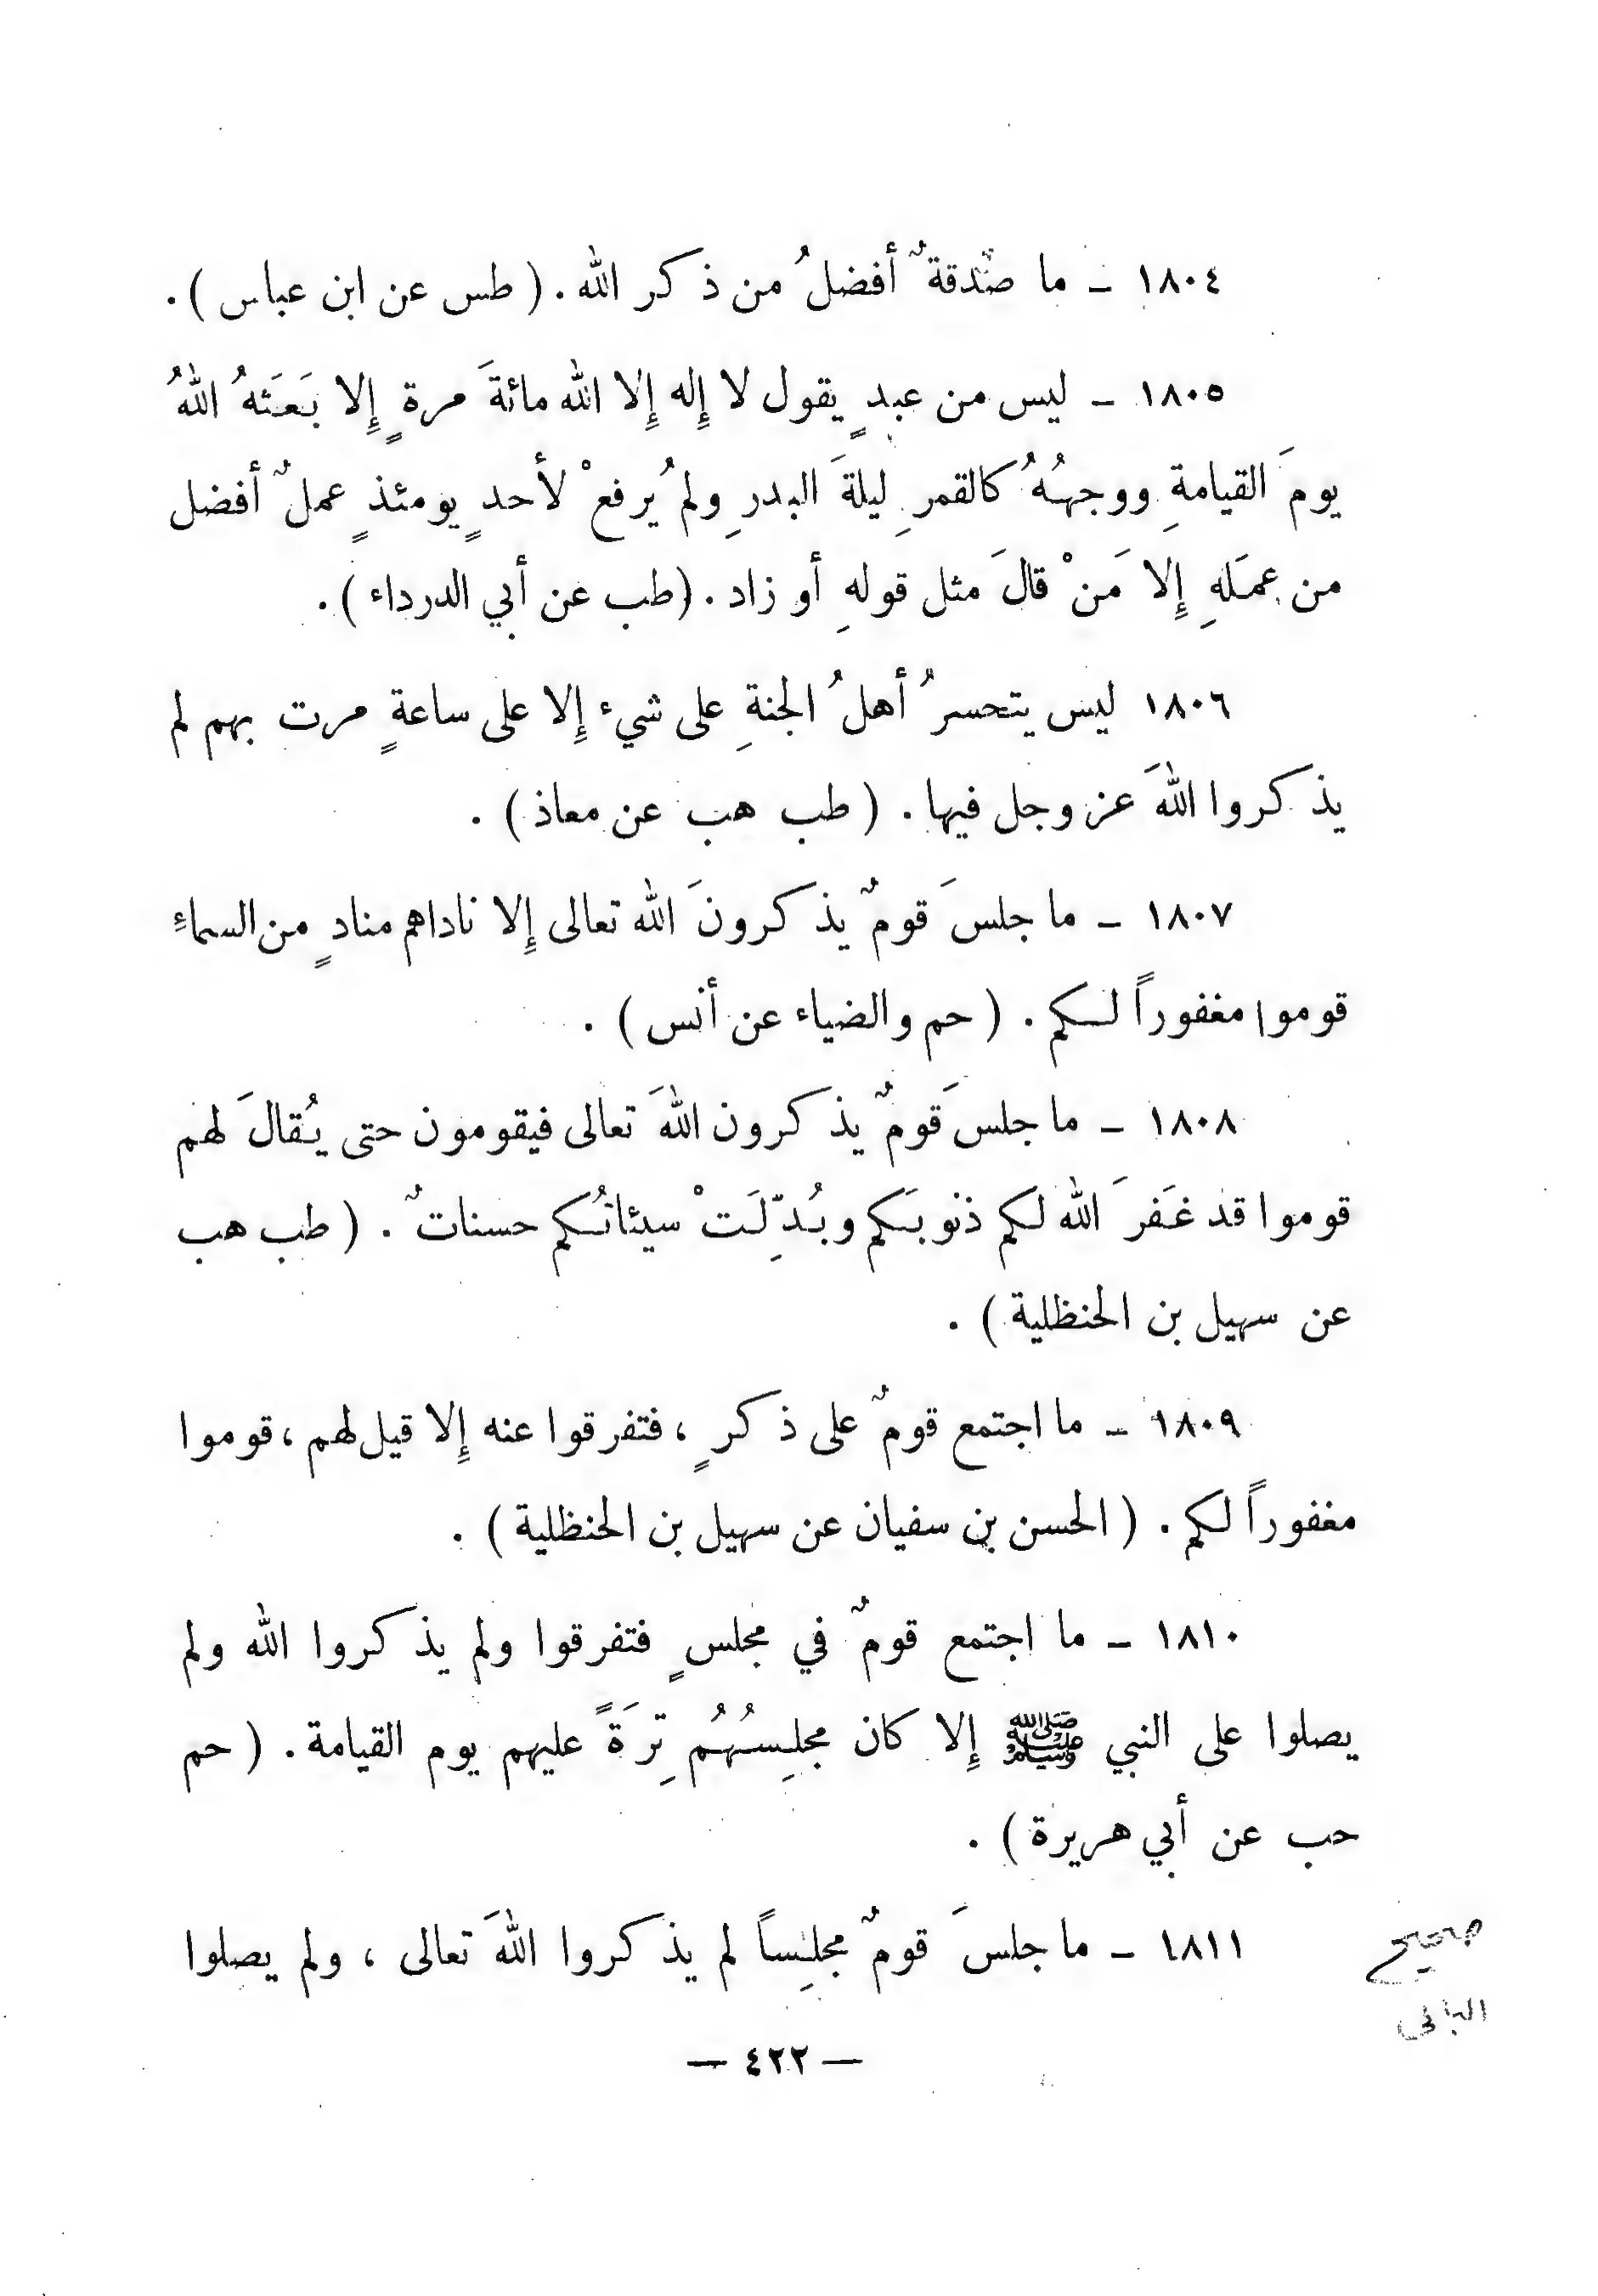 ١٨٠٤ ـ ما صدقةٌ أفضلُ من ذكر الله . ( طس عن ابن عباس ) .
١٨٠٥ ـ ليس من عبدٍ يقول لا إِله إِلا الله مائةَ مرةٍ إِلا بَعَثهُ اللهُ
يومَ القيامةِ ووجههُ كالقمرِ ليلةَ البدرِ ولم يُرفعْ لأحدٍ يومئذٍ عملٌ أفضل
من عمَلهِ إِلا مَنْ قالَ مثل قولهِ أو زاد . ( طب عن أبي الدرداء ) .
١٨٠٦ ليس يتحسرُ أهلُ الجنةِ على شيء إِلا على ساعةٍ مرت بهم لم
يذكروا اللهَ عز وجل فيها . ( طب هب عن معاذ ) .
١٨٠٧ ـ ما جلسَ قومٌ يذكرونَ الله تعالى إِلا ناداهم منادٍ من السماءِ
قوموا مغفوراً لكم . ( حم والضياء عن أنس ) .
١٨٠٨ ـ ما جلسَ قومٌ يذكرون اللهَ تعالى فيقومون حتى يُقالَ لهم
قوموا قد غَفرَ الله لكم ذنوبَكم وبُدِّلَتْ سيئاتُكم حسناتٌ . ( طب هب
عن سهيل بن الحنظلية ) .
١٨٠٩ ـ ما اجتمع قومٌ على ذكرٍ ، فتفرقوا عنه إِلا قيل لهم ، قوموا
مغفوراً لكم . ( الحسن بن سفيان عن سهيل بن الحنظلية ) .
١٨١٠ ـ ما اجتمع قومٌ في مجلسٍ فتفرقوا ولم يذكروا الله ولم
يصلوا على النبي ﷺ إِلا كان مجلِسُهُم تِرَةً عليهم يوم القيامة . ( حم
حب عن أبي هريرة ) .
١٨١١ ـ ما جلسَ قومٌ مجلِساً لم يذكروا اللهَ تعالى ، ولم يصلوا
صحيح
— ٤٢٢ —